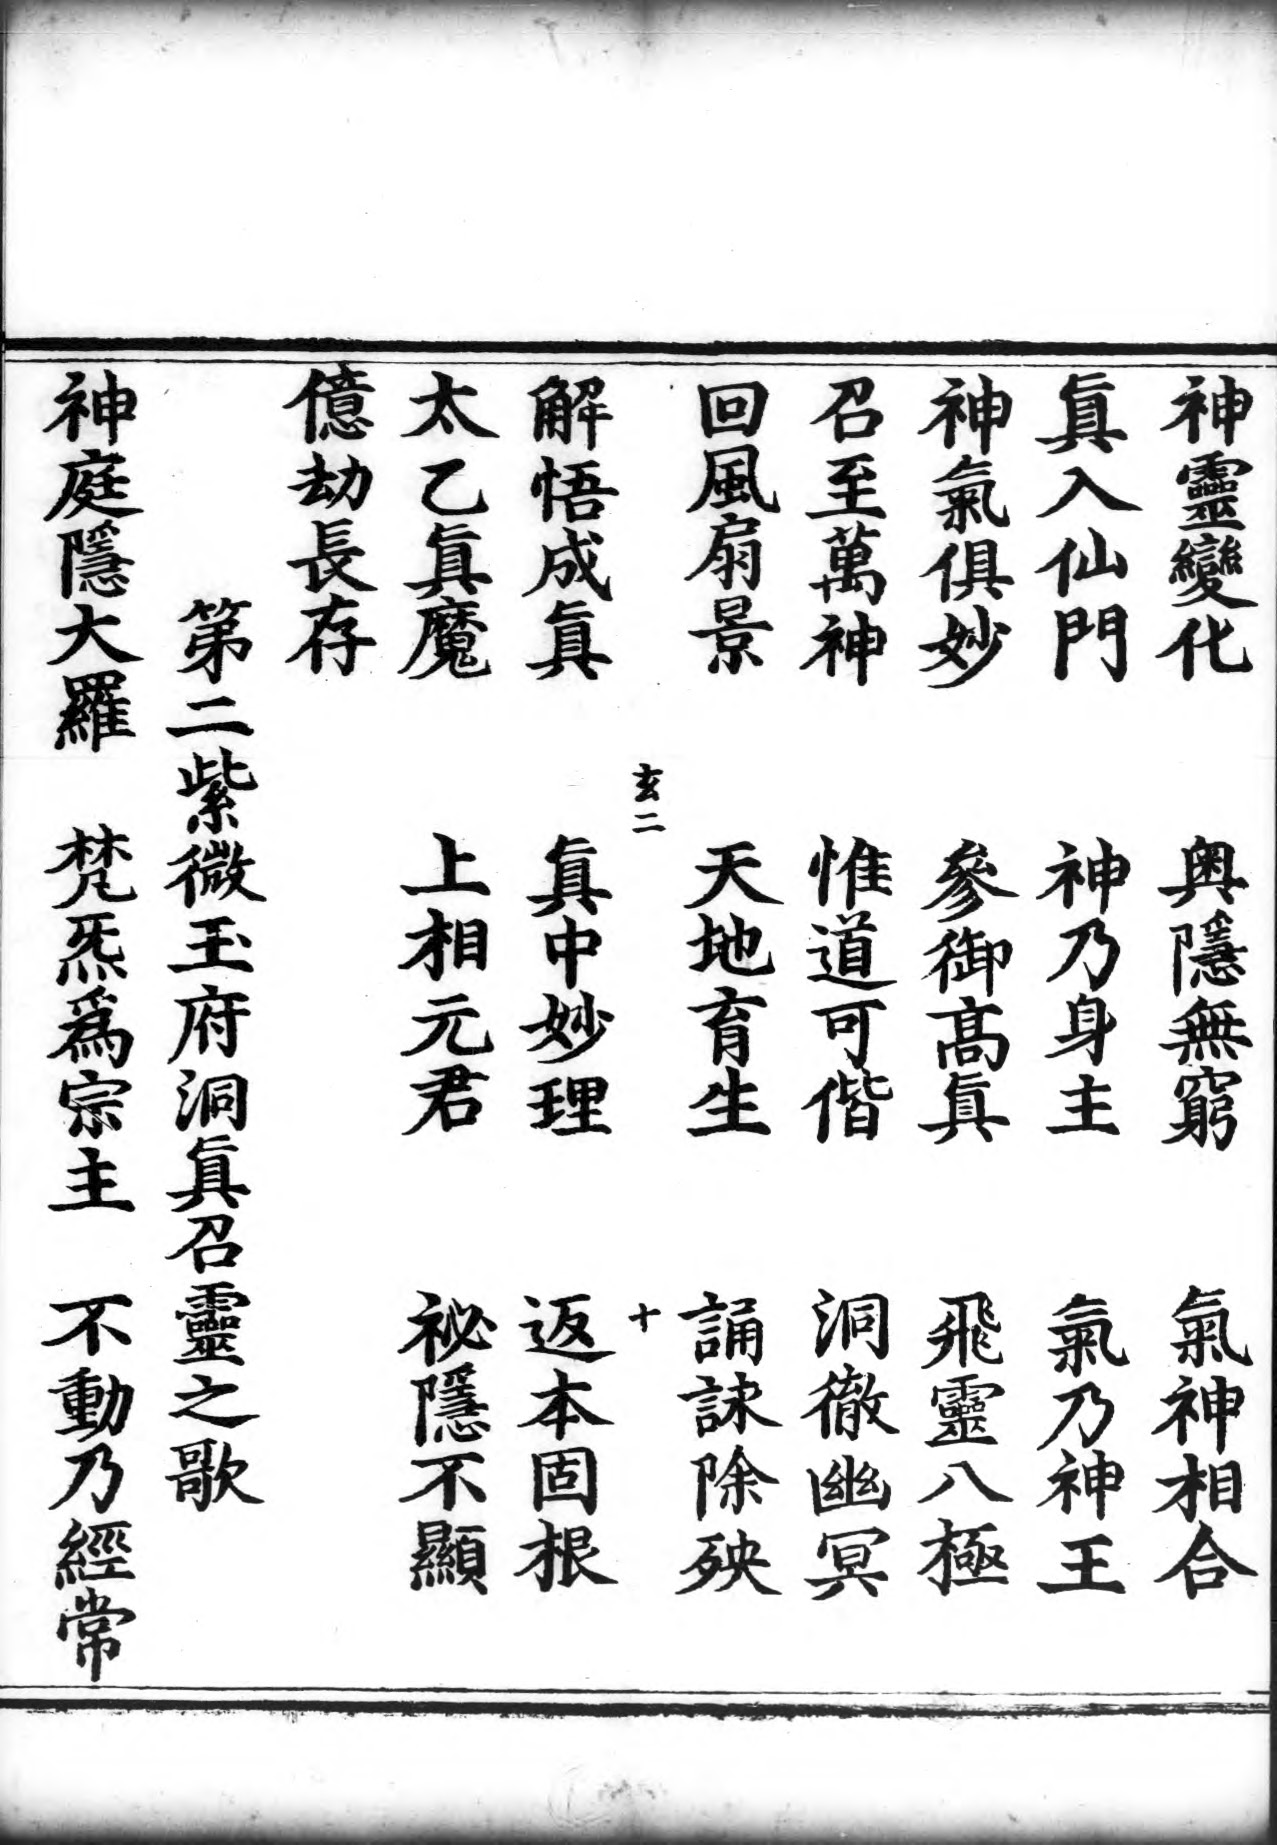 神靈變化　奧隱無窮　氣神相合
眞入仙門　神乃身主　氣乃神王
神氣俱妙　參御髙眞　飛靈八極
召至萬神　惟道可偕　洞徹幽冥
回風扇景　天地育生　誦訣除殃
玄二　十
解悟成眞　眞中妙理　返本固根
太乙眞魔　上相元君　祕隱不顯
億劫長存
第二紫微玉府洞眞召靈之歌
神庭隱大羅　梵炁爲宗主　不動乃經常